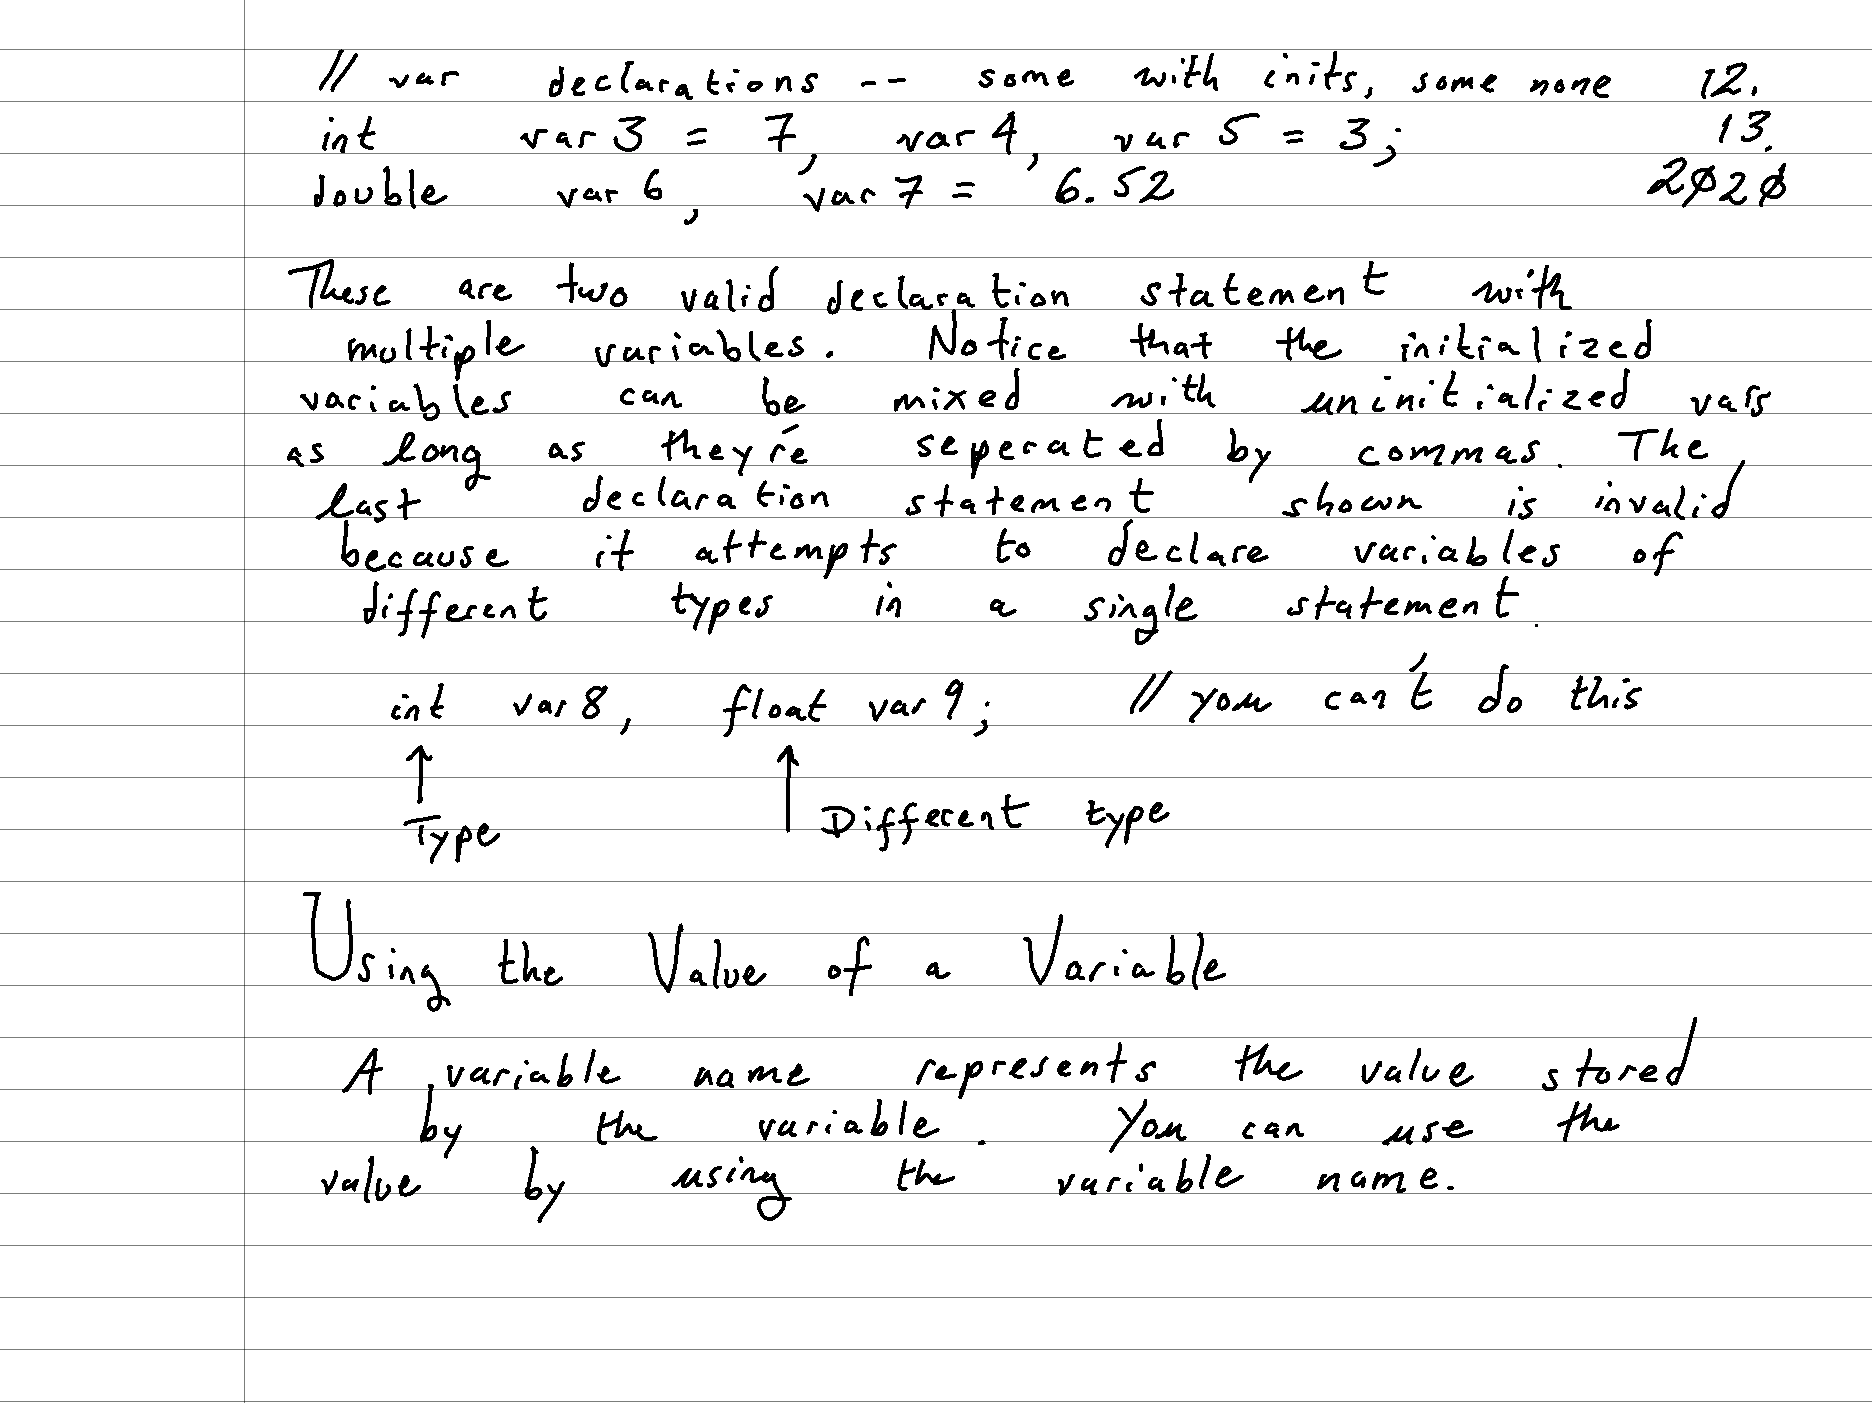 // var declarations -- some with inits, some none 12.
int var 3 = 7, var 4, var 5 = 3; 13.
double var 6, var 7 = 6.52 2020
These are two valid declaration statement with
multiple variables. Notice that the initialized
variables can be mixed with uninitialized vars
as long as they're seperated by commas. The
last declaration statement shown is invalid
because it attempts to declare variables of
different types in a single statement.
int var 8, float var 9; // you can't do this
↑ ↑
Type Different type
Using the Value of a Variable
A variable name represents the value stored
by the variable. You can use the
value by using the variable name.